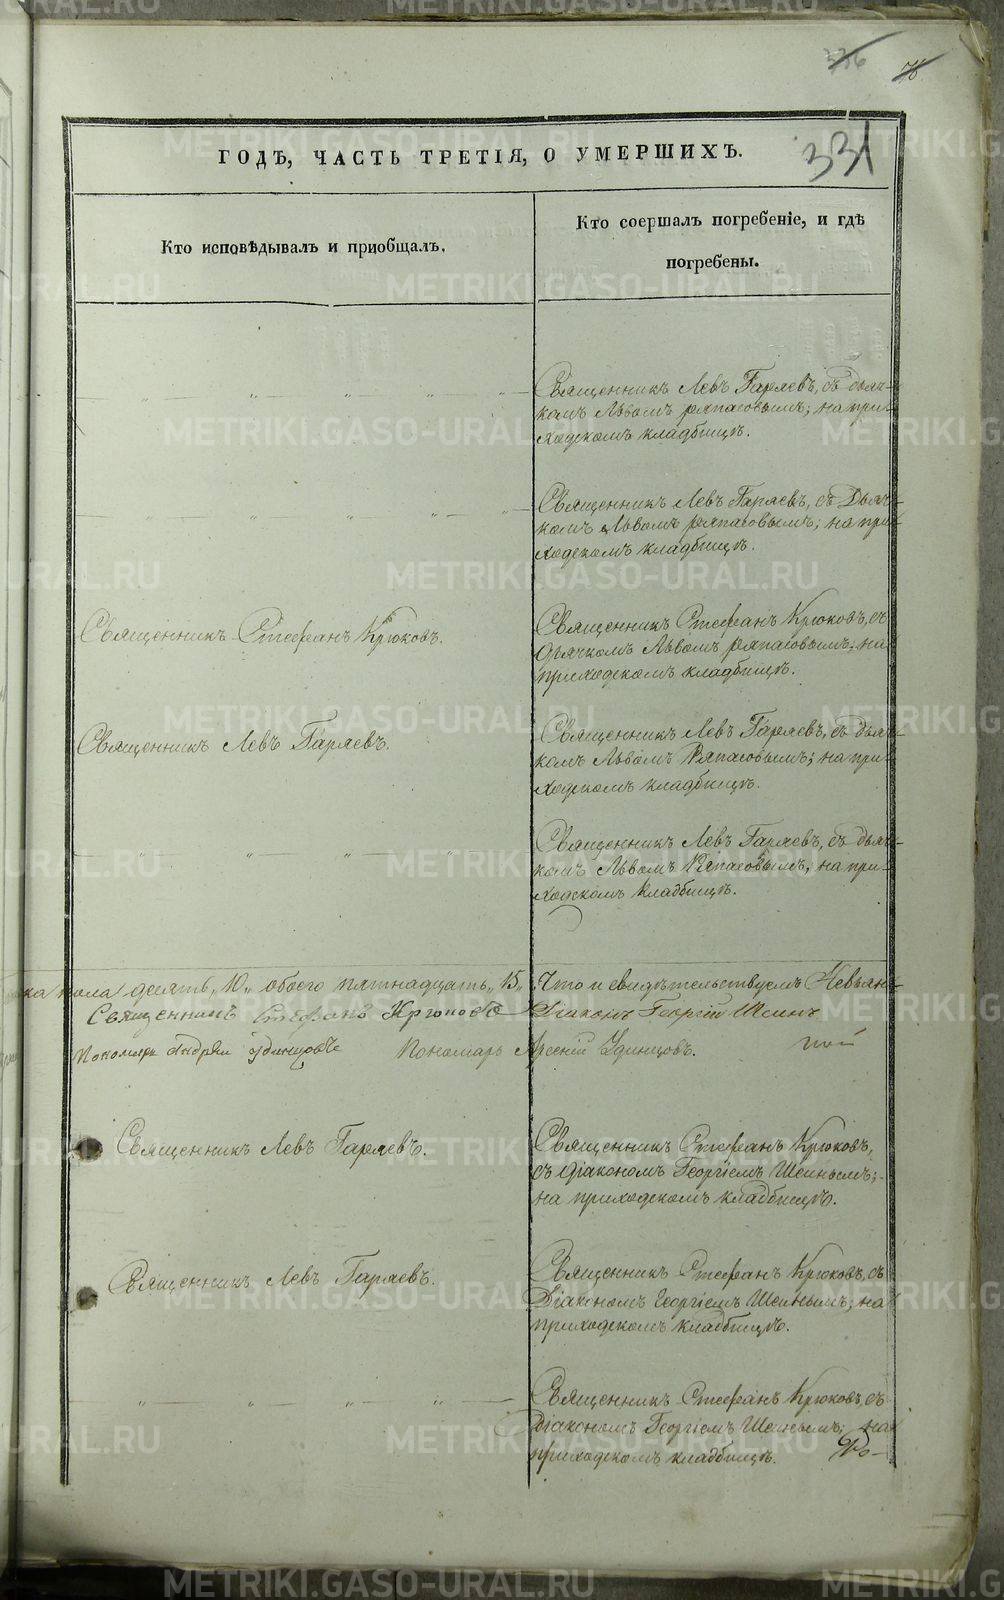 376
76
331
ГОДѢ, ЧАСТЬ ТРЕТІЯ, О УМЕРШИХЪ.
Кто исповѣдывалъ и приобщалъ.
Кто соершалъ погребеніе, и гдѣ
погребены.
Священникъ Левъ Гаряевъ, съ дьяч-
комъ Львомъ Ряпасовымъ; на при-
ходскомъ кладбищѣ.
Священникъ Левъ Гаряевъ, съ Дьяч-
комъ Львомъ Ряпасовымъ; на при-
ходскомъ кладбищѣ.
Священникъ Стефанъ Крюковъ.
Священникъ Стефанъ Крюковъ, съ
дьячкомъ Львомъ Ряпасовымъ; на
приходскомъ кладбищѣ.
Священникъ Левъ Гаряевъ.
Священникъ Левъ Гаряевъ, съ дьяч-
комъ Львомъ Ряпасовымъ; на при-
ходскомъ кладбищѣ.
Священникъ Левъ Гаряевъ, съ дьяч-
комъ Львомъ Ряпасовымъ; на при-
ходскомъ кладбищѣ.
ка пола десять „10„ обоего пятнадцать „15„ Что и свидѣтельствуемъ Невьян-
Священникъ Стефанъ Крюковъ Діаконъ Георгій Шеинъ
Пономарь Андрей Удинцовъ Пономарь Арсеній Удинцовъ.
Священникъ Левъ Гаряевъ.
Священникъ Стефанъ Крюковъ,
съ діакономъ Георгіемъ Шеинымъ;
на приходскомъ кладбищѣ.
Священникъ Левъ Гаряевъ.
Священникъ Стефанъ Крюковъ, съ
Діакономъ Георгіемъ Шеинымъ; на
приходскомъ кладбищѣ.
Священникъ Стефанъ Крюковъ, съ
діакономъ Георгіемъ Шеинымъ; на
приходскомъ кладбищѣ.
METRIKI.GASO-URAL.RU